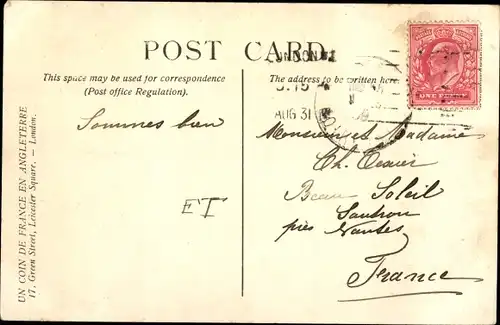 POST CARD.
This space may be used for correspondence
(Post office Regulation).
The address to be written here.
AUG 31
ONE PENNY
Sommes bien
ET
Monsieur et Madame
Ch. Tessier
Beau Soleil
Sautron
près Nantes
France
UN COIN DE FRANCE EN ANGLETERRE
17, Green Street, Leicester Square. — London.